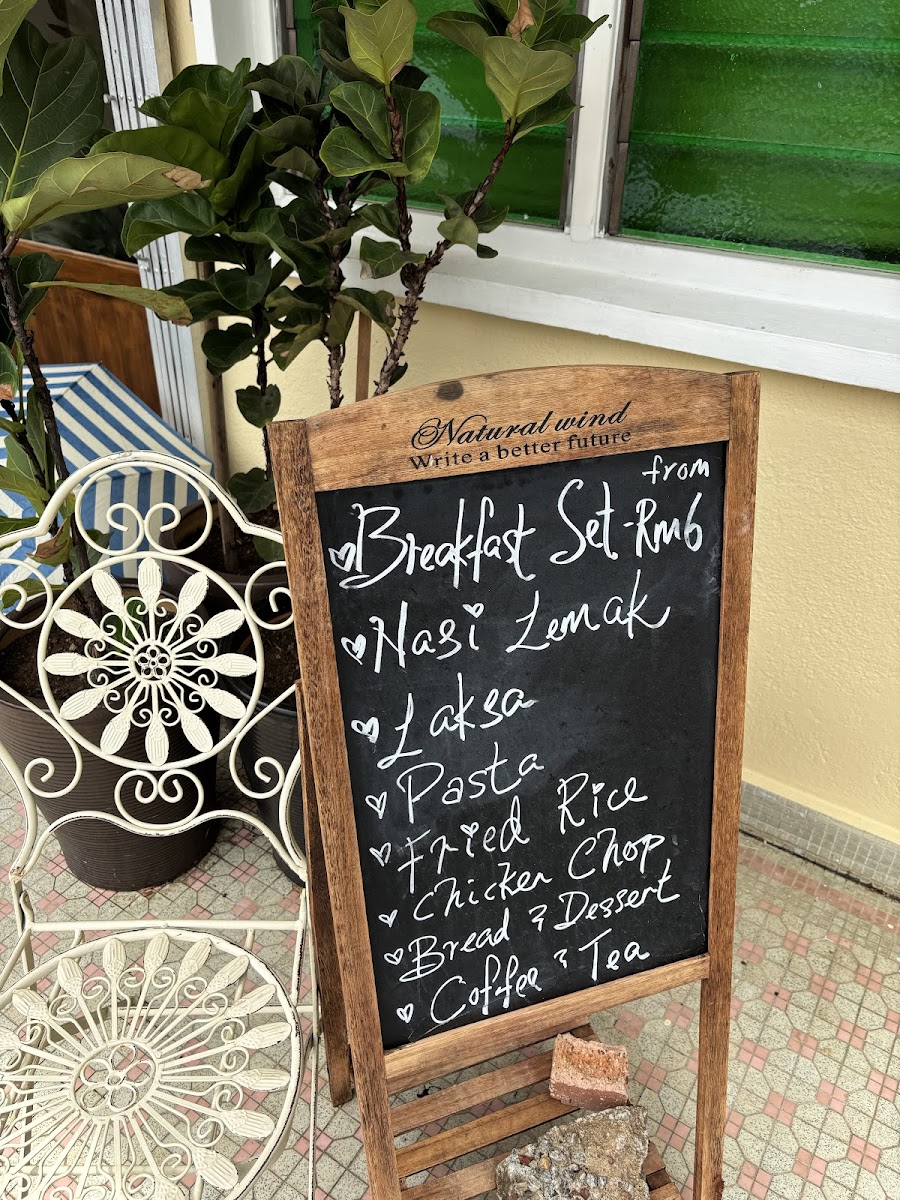 Natural wind
Write a better future
from
Breakfast Set - Rm6
Nasi Lemak
Laksa
Pasta
Fried Rice
Chicken Chop
Bread & Dessert
Coffee & Tea